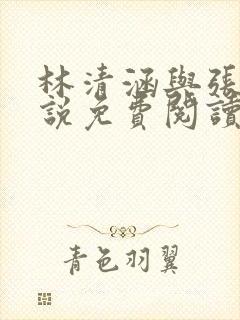 林清涵與張
說免費閱讀
青色羽翼